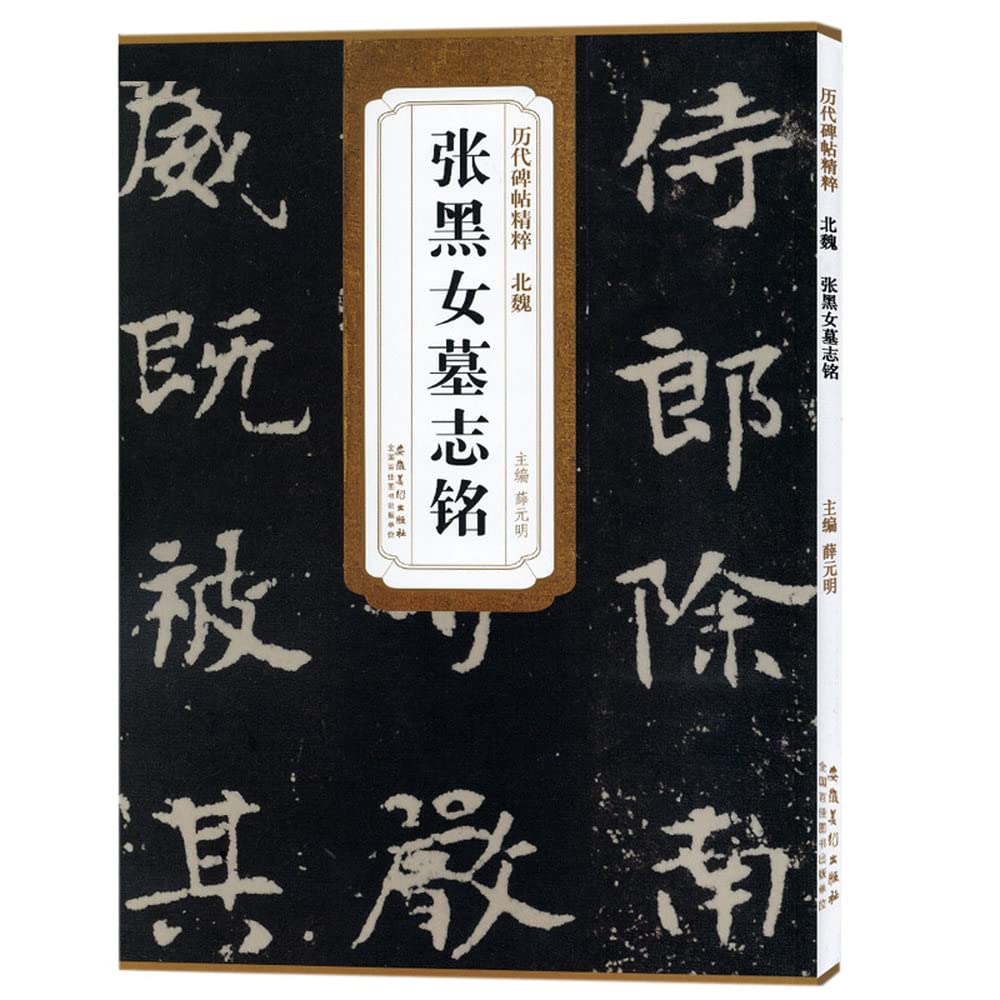 历代碑帖精粹 北魏
张黑女墓志铭
主编 薛元明
安徽美术出版社
全国百佳图书出版单位
侍郎除南
严
威既被其
历代碑帖精粹 北魏 张黑女墓志铭 主编 薛元明
安徽美术出版社
全国百佳图书出版单位